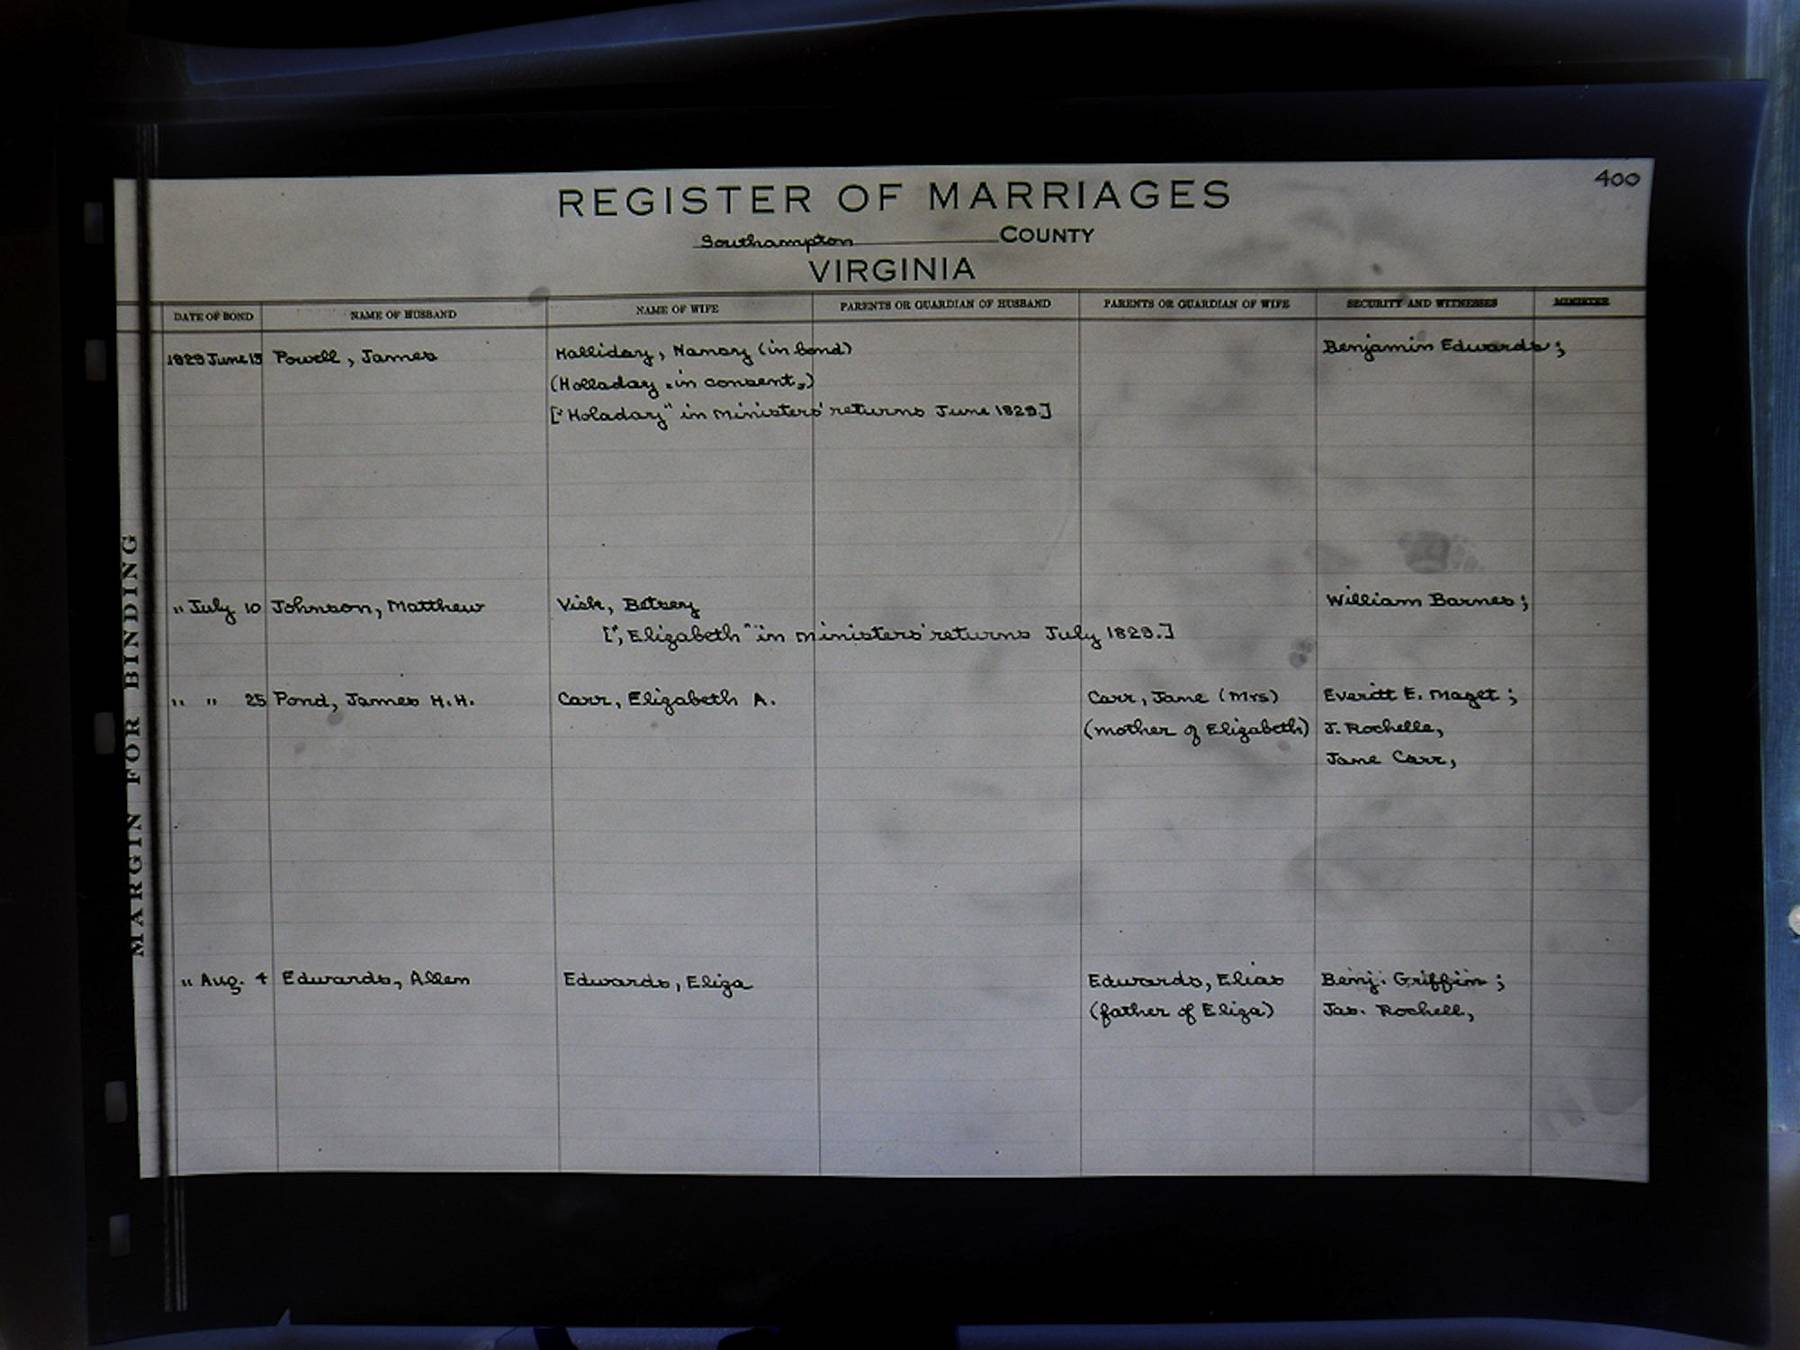 400
REGISTER OF MARRIAGES
Southampton COUNTY
VIRGINIA
DATE OF BOND NAME OF HUSBAND NAME OF WIFE PARENTS OR GUARDIAN OF HUSBAND PARENTS OR GUARDIAN OF WIFE SECURITY AND WITNESSES MINISTER
1829 June 15 Powell, James Halliday, Nancy (in bond) Benjamin Edwards;
(Holladay "in consent")
["Holaday" in ministers' returns June 1829.]
" July 10 Johnson, Matthew Vick, Betsey William Barnes;
[", Elizabeth" in ministers' returns July 1829.]
" " 25 Pond, James H.H. Carr, Elizabeth A. Carr, Jane (Mrs) Everitt E. Maget;
(mother of Elizabeth) J. Rochelle,
Jane Carr,
" Aug. 4 Edwards, Allen Edwards, Eliza Edwards, Elias Benj. Griffin;
(father of Eliza) Jas. Rochell,
MARGIN FOR BINDING